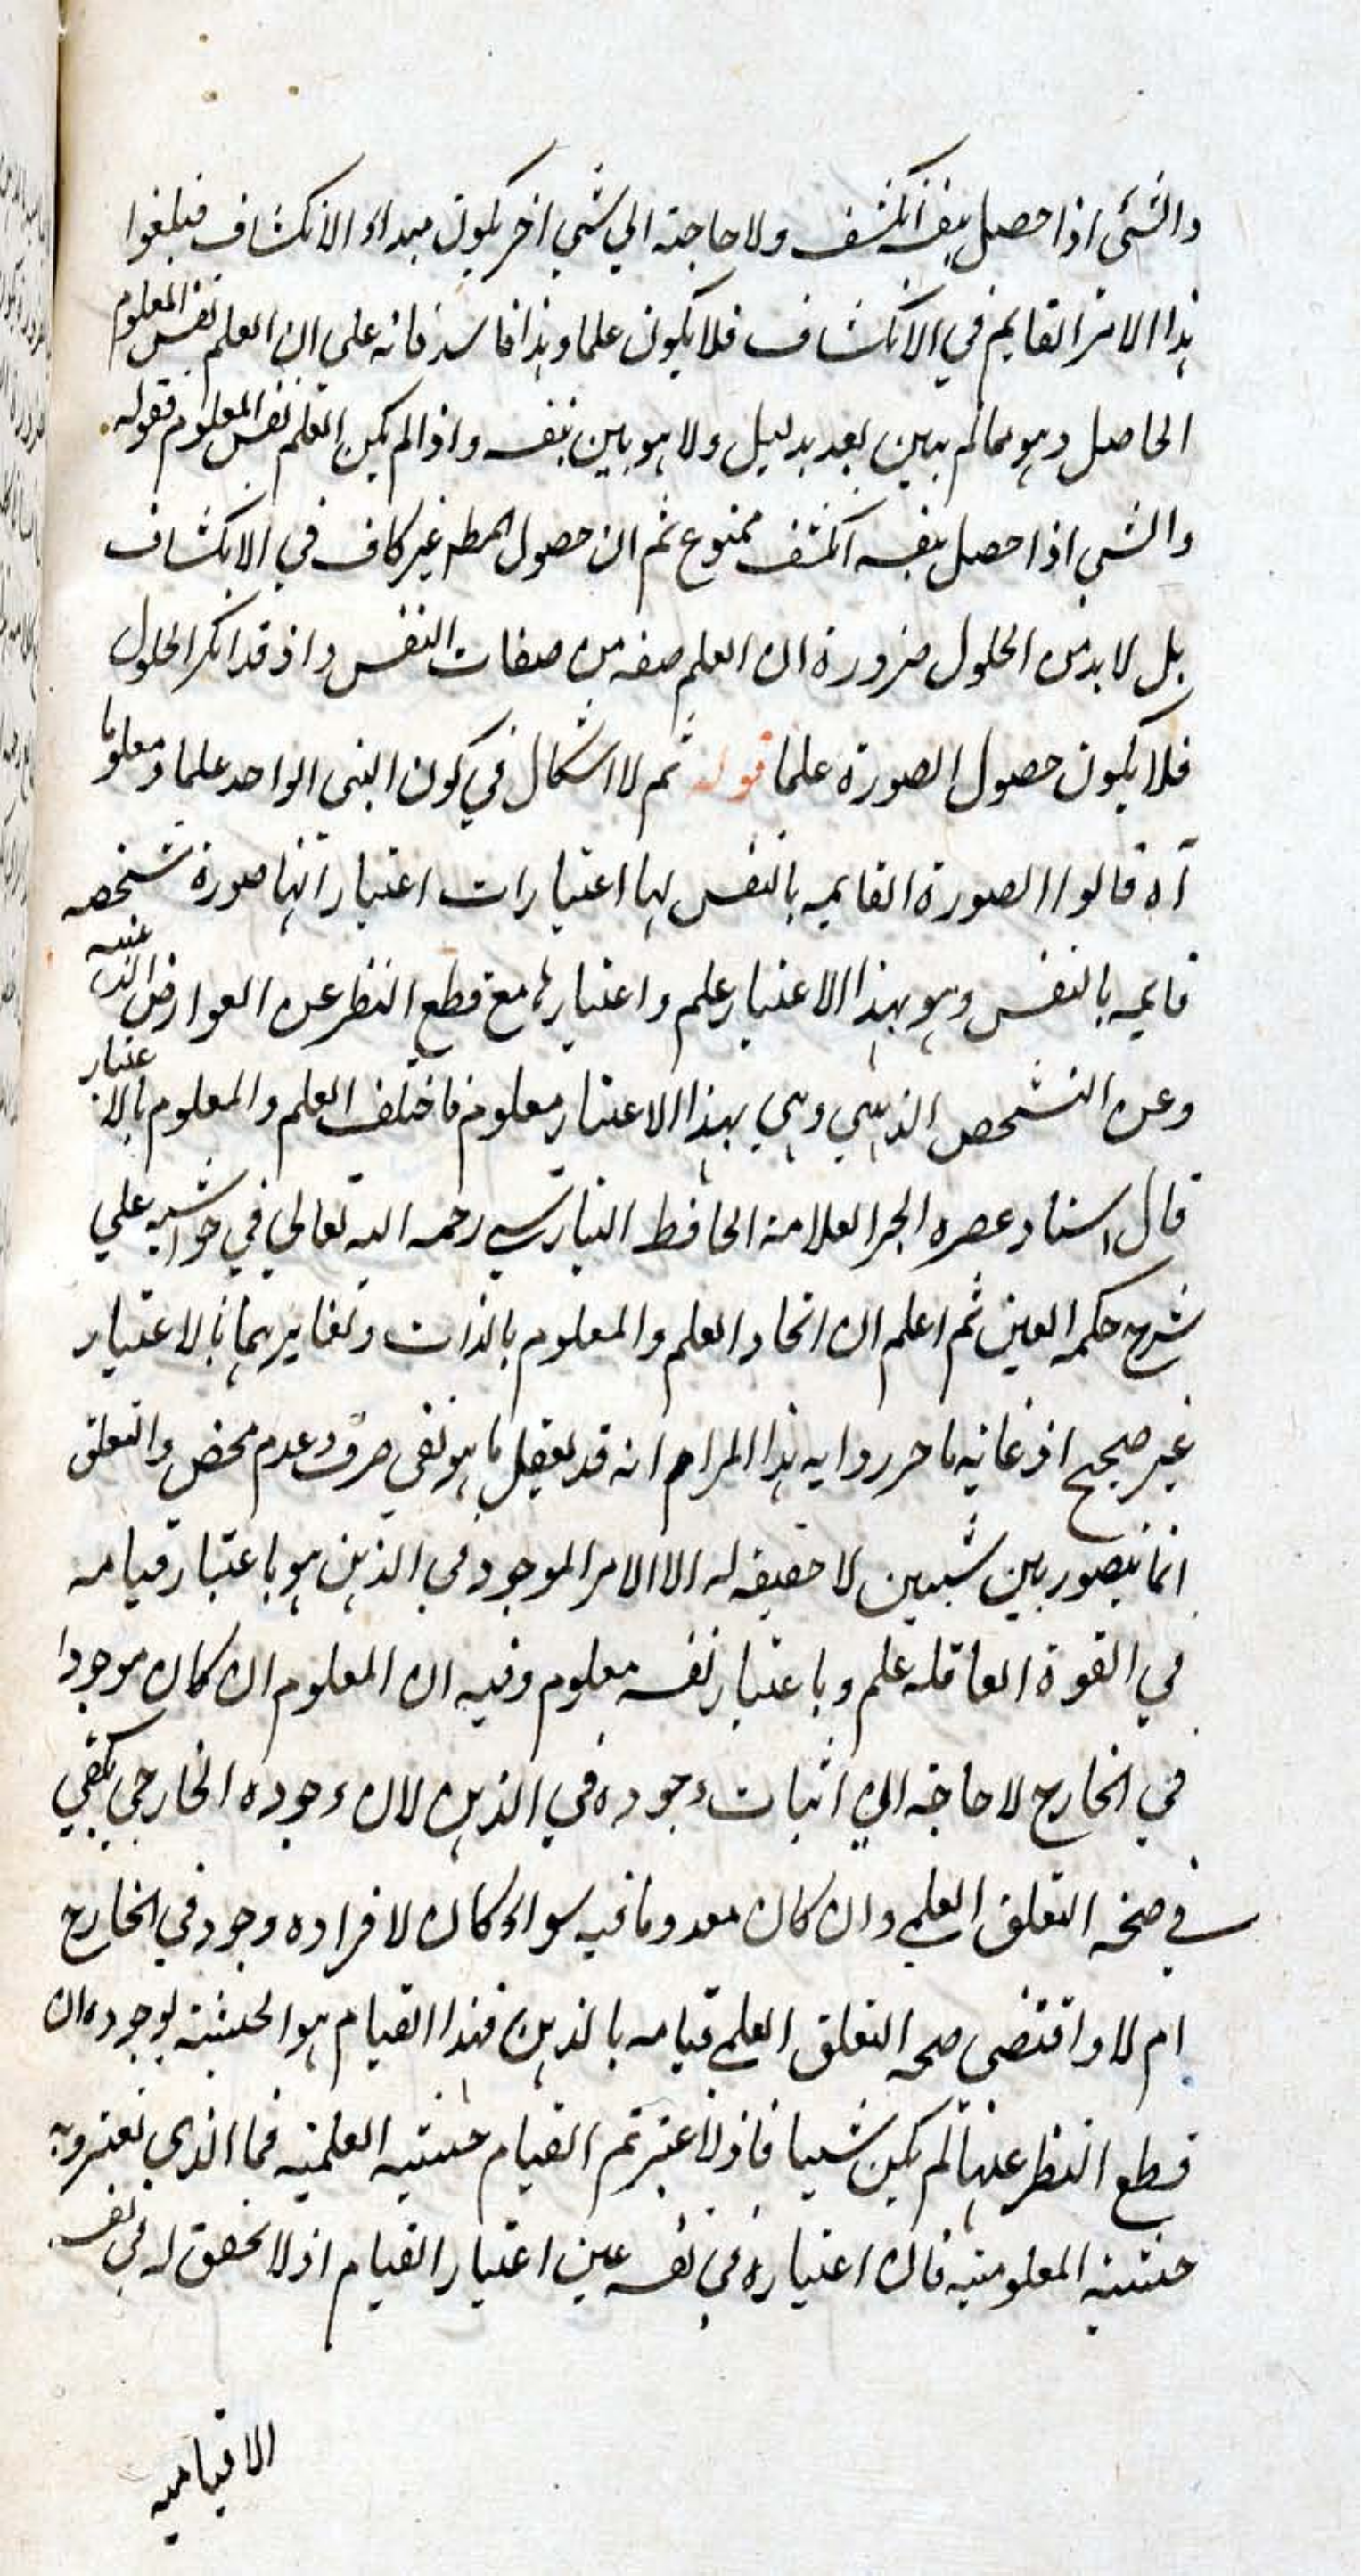 والشئ اذا حصل بنفسه انكشف ولا حاجة الي شئ اخر يكون مبداء الانكشاف فيلغوا
هذا الامر القايم في الانكشاف فلا يكون علما وهذا فاسد فانه علي ان العلم نفس المعلوم
الحاصل وهو مما لم يبين بعد بدليل ولا هو بين بنفسه واذا لم يكن العلم نفس المعلوم فقوله
والشي اذا حصل بنفسه انكشف ممنوع ثم ان حصول المط غير كاف في الانكشاف
بل لا بد من الحلول ضرورة ان العلم صفه من صفات النفس واذ قد انكر الحلول
فلا يكون حصول الصورة علما قوله ثم لا اشكال في كون الشى الواحد علما و معلوما
آه قالوا الصورة القايمه بالنفس لها اعتبارات اعتبار انها صورة شخصه
قايمه بالنفس وهو بهذا الاعتبار علم واعتبارها مع قطع النظر عن العوارض الذهنيه
وعن التشخص الذهني وهي بهذا الاعتبار معلوم فاختلف العلم والمعلوم بالاعتبار
قال استاد عصره الحبر العلامة الحافظ البنارسي رحمه الله تعالي في حواشيه علي
شرح حكمه العين ثم اعلم ان اتحاد العلم والمعلوم بالذات وتغايرهما بالاعتبار
غير صحيح اذ غايه ما حرروا به هذا المرام انه قد يعقل ما هو نفي صرف وعدم محض والتعلق
انما يتصور بين شيين لا حقيقه له الا الامر الموجود في الذهن هو باعتبار قيامه
في القوة العاقله علم وباعتبار نفسه معلوم وفيه ان المعلوم ان كان موجودا
في الخارج لا حاجة الي اثبات وجوده في الذهن لان وجوده الخارجي يكفي
في صحة التعلق العلمي وان كان معدوما فيه سواء كان لافراده وجود في الخارج
ام لا واقتضى صحه التعلق العلمي قيامه بالذهن فهذا القيام هو الحيثية لوجوده ان
قطع النظر عنها لم يكن شيا فاذا اعتبرتم القيام حيثيه العلميه فما الذي تعتبرونه
حيثية المعلوميه فان اعتباره في نفسه عين اعتبار القيام اذ لا تحقق له في نفسه
الا قياميه